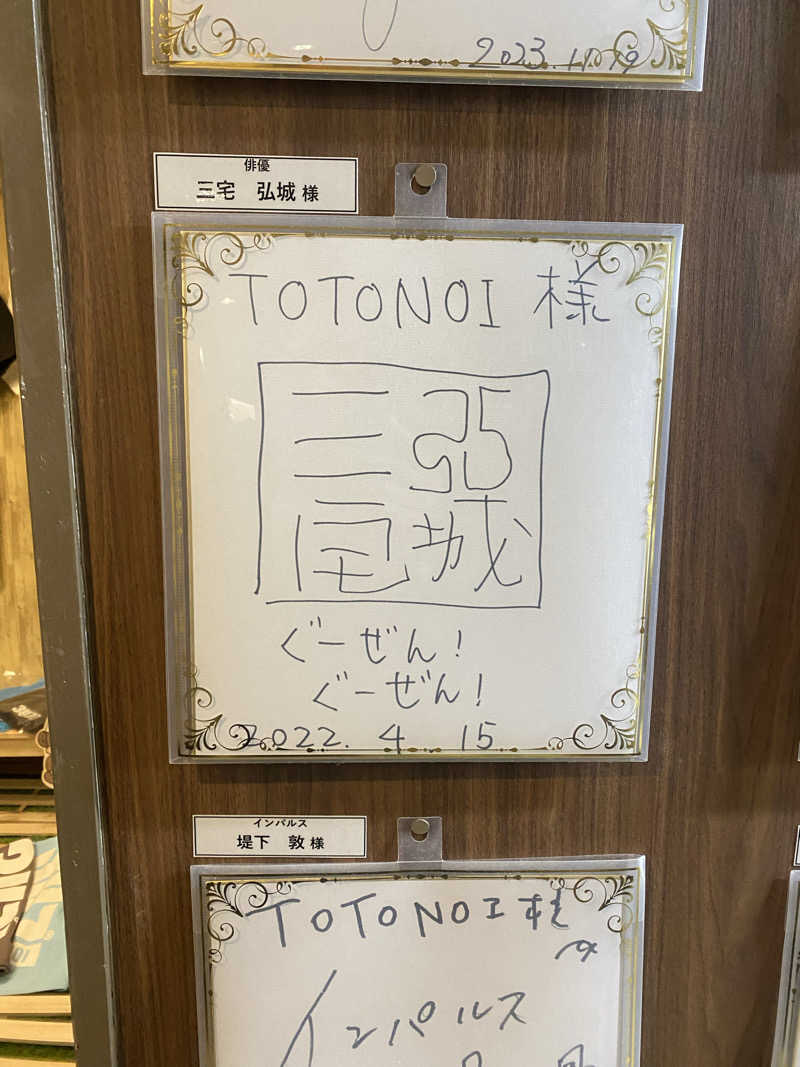 2023. 11. 19
俳優
三宅 弘城 様
TOTONOI 様
三宅 弘城
ぐーぜん!
ぐーぜん!
2022. 4 15
インパルス
堤下 敦 様
TOTONOI 様
インパルス